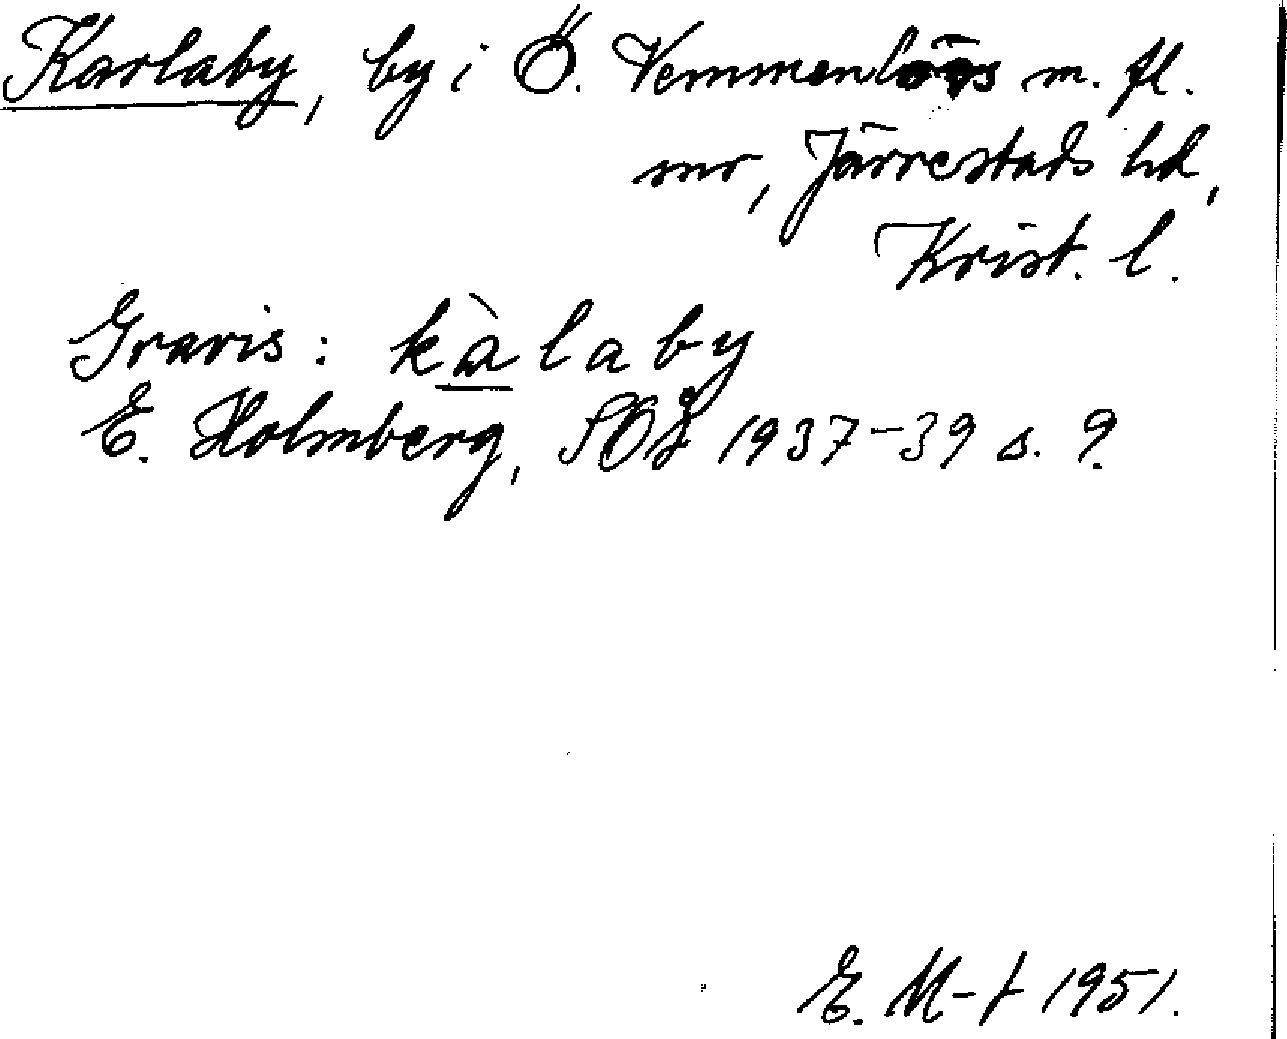 Karlaby, by i Ö. Vemmenlövs m. fl.
snr, Järrestads hd,
Krist. l.
Gravis: kàlaby
E. Holmberg, SOÅ 1937-39 s. 9.
E. M-t 1951.